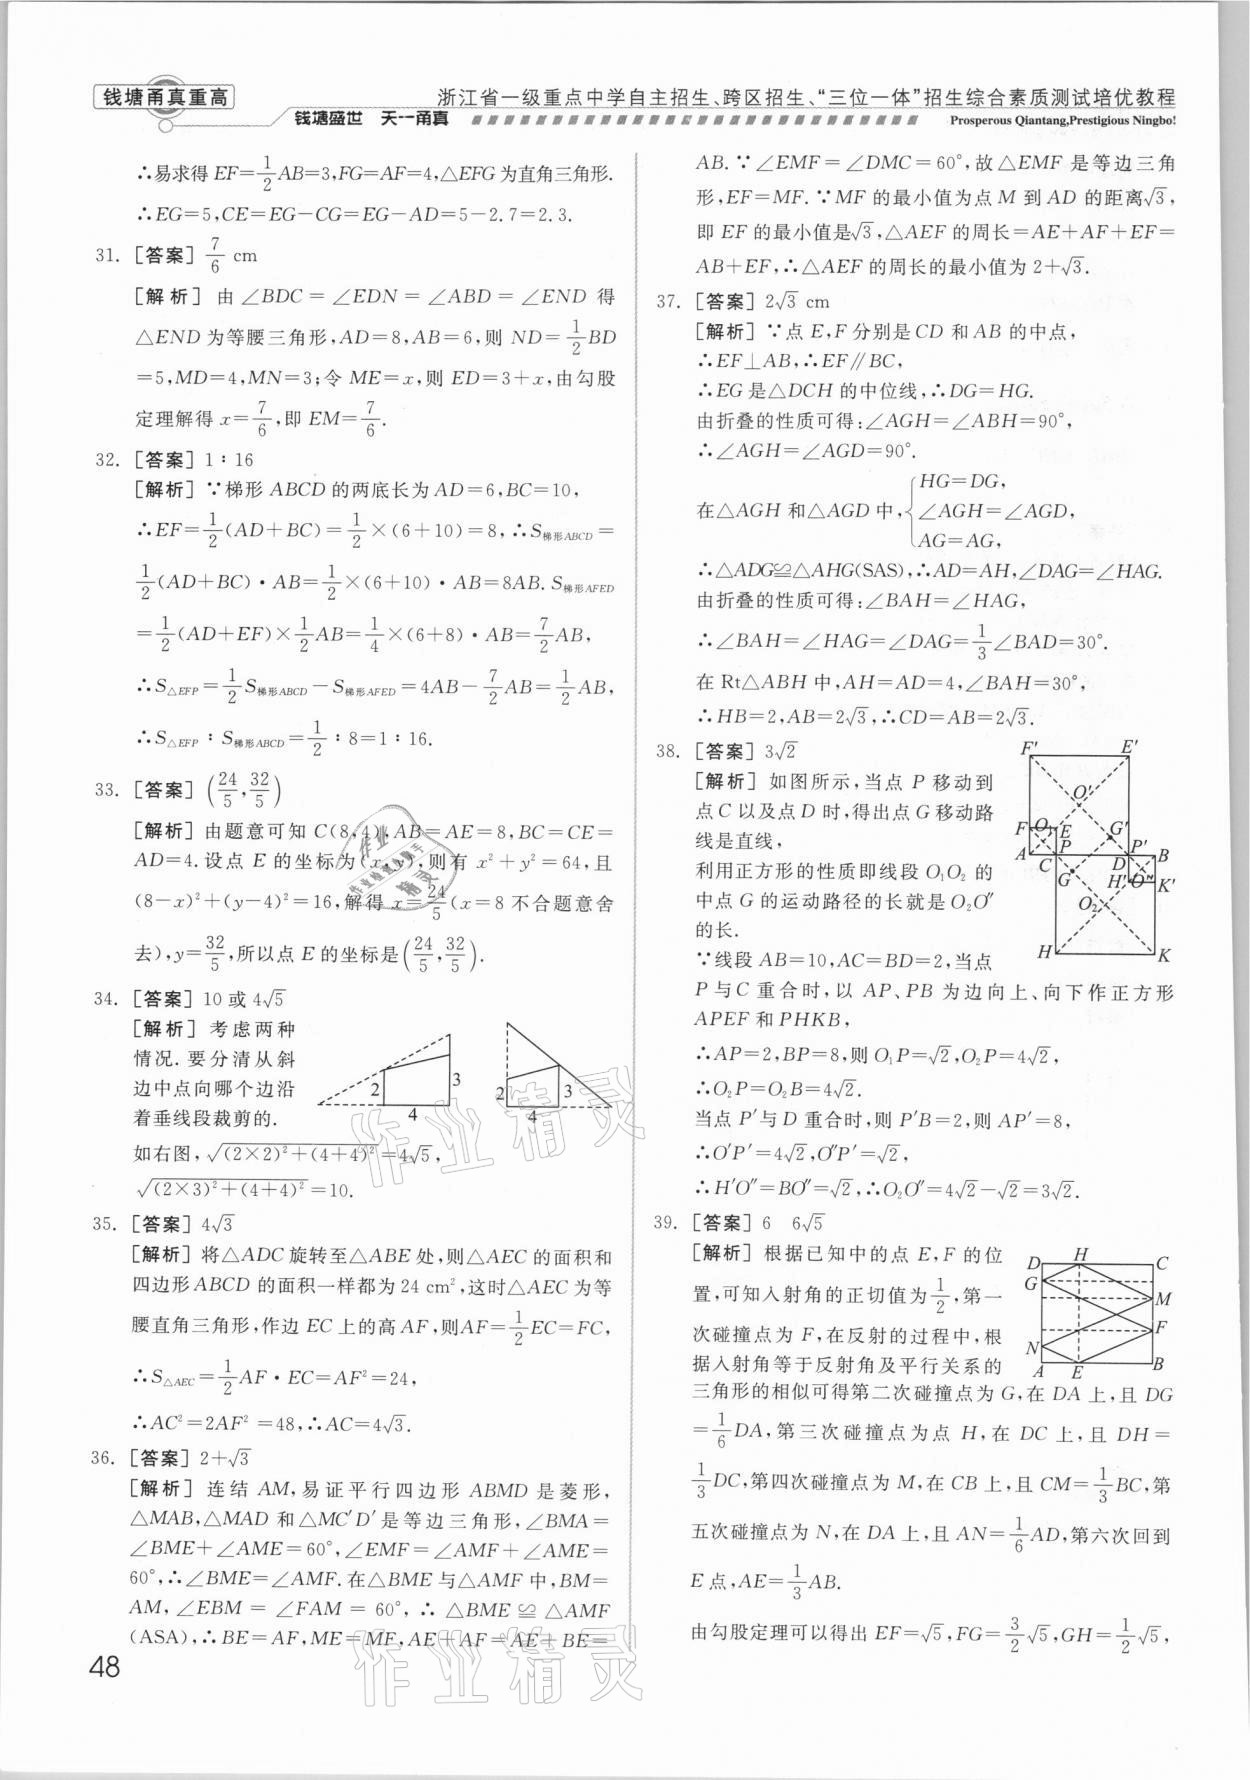 钱塘甬真重高
浙江省一级重点中学自主招生、跨区招生、“三位一体”招生综合素质测试培优教程
钱塘盛世 天一甬真
Prosperous Qiantang,Prestigious Ningbo!
∴易求得EF=1/2AB=3,FG=AF=4,△EFG为直角三角形.
∴EG=5,CE=EG-CG=EG-AD=5-2.7=2.3.
31. [答案] 7/6 cm
[解析] 由∠BDC=∠EDN=∠ABD=∠END得
△END为等腰三角形,AD=8,AB=6,则ND=1/2BD
=5,MD=4,MN=3;令ME=x,则ED=3+x,由勾股
定理解得x=7/6,即EM=7/6.
32. [答案] 1∶16
[解析] ∵梯形ABCD的两底长为AD=6,BC=10,
∴EF=1/2(AD+BC)=1/2×(6+10)=8,∴S梯形ABCD=
1/2(AD+BC)·AB=1/2×(6+10)·AB=8AB.S梯形AFED
=1/2(AD+EF)×1/2AB=1/4×(6+8)·AB=7/2AB,
∴S△EFP=1/2S梯形ABCD-S梯形AFED=4AB-7/2AB=1/2AB,
∴S△EFP∶S梯形ABCD=1/2∶8=1∶16.
33. [答案] (24/5,32/5)
[解析] 由题意可知C(8,4),AB=AE=8,BC=CE=
AD=4.设点E的坐标为(x,y),则有x²+y²=64,且
(8-x)²+(y-4)²=16,解得x=24/5(x=8不合题意舍
去),y=32/5,所以点E的坐标是(24/5,32/5).
34. [答案] 10或4√5
[解析] 考虑两种
情况.要分清从斜
边中点向哪个边沿
着垂线段裁剪的.
2 3 4
2 3 4
如右图,√((2×2)²+(4+4)²)=4√5,
√((2×3)²+(4+4)²)=10.
35. [答案] 4√3
[解析] 将△ADC旋转至△ABE处,则△AEC的面积和
四边形ABCD的面积一样都为24 cm²,这时△AEC为等
腰直角三角形,作边EC上的高AF,则AF=1/2EC=FC,
∴S△AEC=1/2AF·EC=AF²=24,
∴AC²=2AF²=48,∴AC=4√3.
36. [答案] 2+√3
[解析] 连结AM,易证平行四边形ABMD是菱形,
△MAB,△MAD和△MC′D′是等边三角形,∠BMA=
∠BME+∠AME=60°,∠EMF=∠AMF+∠AME=
60°,∴∠BME=∠AMF.在△BME与△AMF中,BM=
AM,∠EBM=∠FAM=60°,∴△BME≌△AMF
(ASA),∴BE=AF,ME=MF,AE+AF=AE+BE=
48
AB.∵∠EMF=∠DMC=60°,故△EMF是等边三角
形,EF=MF.∵MF的最小值为点M到AD的距离√3,
即EF的最小值是√3,△AEF的周长=AE+AF+EF=
AB+EF,∴△AEF的周长的最小值为2+√3.
37. [答案] 2√3 cm
[解析] ∵点E,F分别是CD和AB的中点,
∴EF⊥AB,∴EF∥BC,
∴EG是△DCH的中位线,∴DG=HG.
由折叠的性质可得:∠AGH=∠ABH=90°,
∴∠AGH=∠AGD=90°.
在△AGH和△AGD中,{HG=DG,
∠AGH=∠AGD,
AG=AG,
∴△ADG≌△AHG(SAS),∴AD=AH,∠DAG=∠HAG.
由折叠的性质可得:∠BAH=∠HAG,
∴∠BAH=∠HAG=∠DAG=1/3∠BAD=30°.
在Rt△ABH中,AH=AD=4,∠BAH=30°,
∴HB=2,AB=2√3,∴CD=AB=2√3.
38. [答案] 3√2
[解析] 如图所示,当点P移动到
点C以及点D时,得出点G移动路
线是直线,
利用正方形的性质即线段O₁O₂的
中点G的运动路径的长就是O₂O″
的长.
F′ E′
O′
F O₁ E G′
A C P P′ D B
G H′ O″ K′
O₂
H K
∵线段AB=10,AC=BD=2,当点
P与C重合时,以AP、PB为边向上、向下作正方形
APEF和PHKB,
∴AP=2,BP=8,则O₁P=√2,O₂P=4√2,
∴O₂P=O₂B=4√2.
当点P′与D重合时,则P′B=2,则AP′=8,
∴O′P′=4√2,O″P′=√2,
∴H′O″=BO″=√2,∴O₂O″=4√2-√2=3√2.
39. [答案] 6 6√5
[解析] 根据已知中的点E,F的位
置,可知入射角的正切值为1/2,第一
次碰撞点为F,在反射的过程中,根
据入射角等于反射角及平行关系的
D H C
G
M
F
N
A E B
三角形的相似可得第二次碰撞点为G,在DA上,且DG
=1/6DA,第三次碰撞点为点H,在DC上,且DH=
1/3DC,第四次碰撞点为M,在CB上,且CM=1/3BC,第
五次碰撞点为N,在DA上,且AN=1/6AD,第六次回到
E点,AE=1/3AB.
由勾股定理可以得出EF=√5,FG=3/2√5,GH=1/2√5,
作业精灵
作业精灵